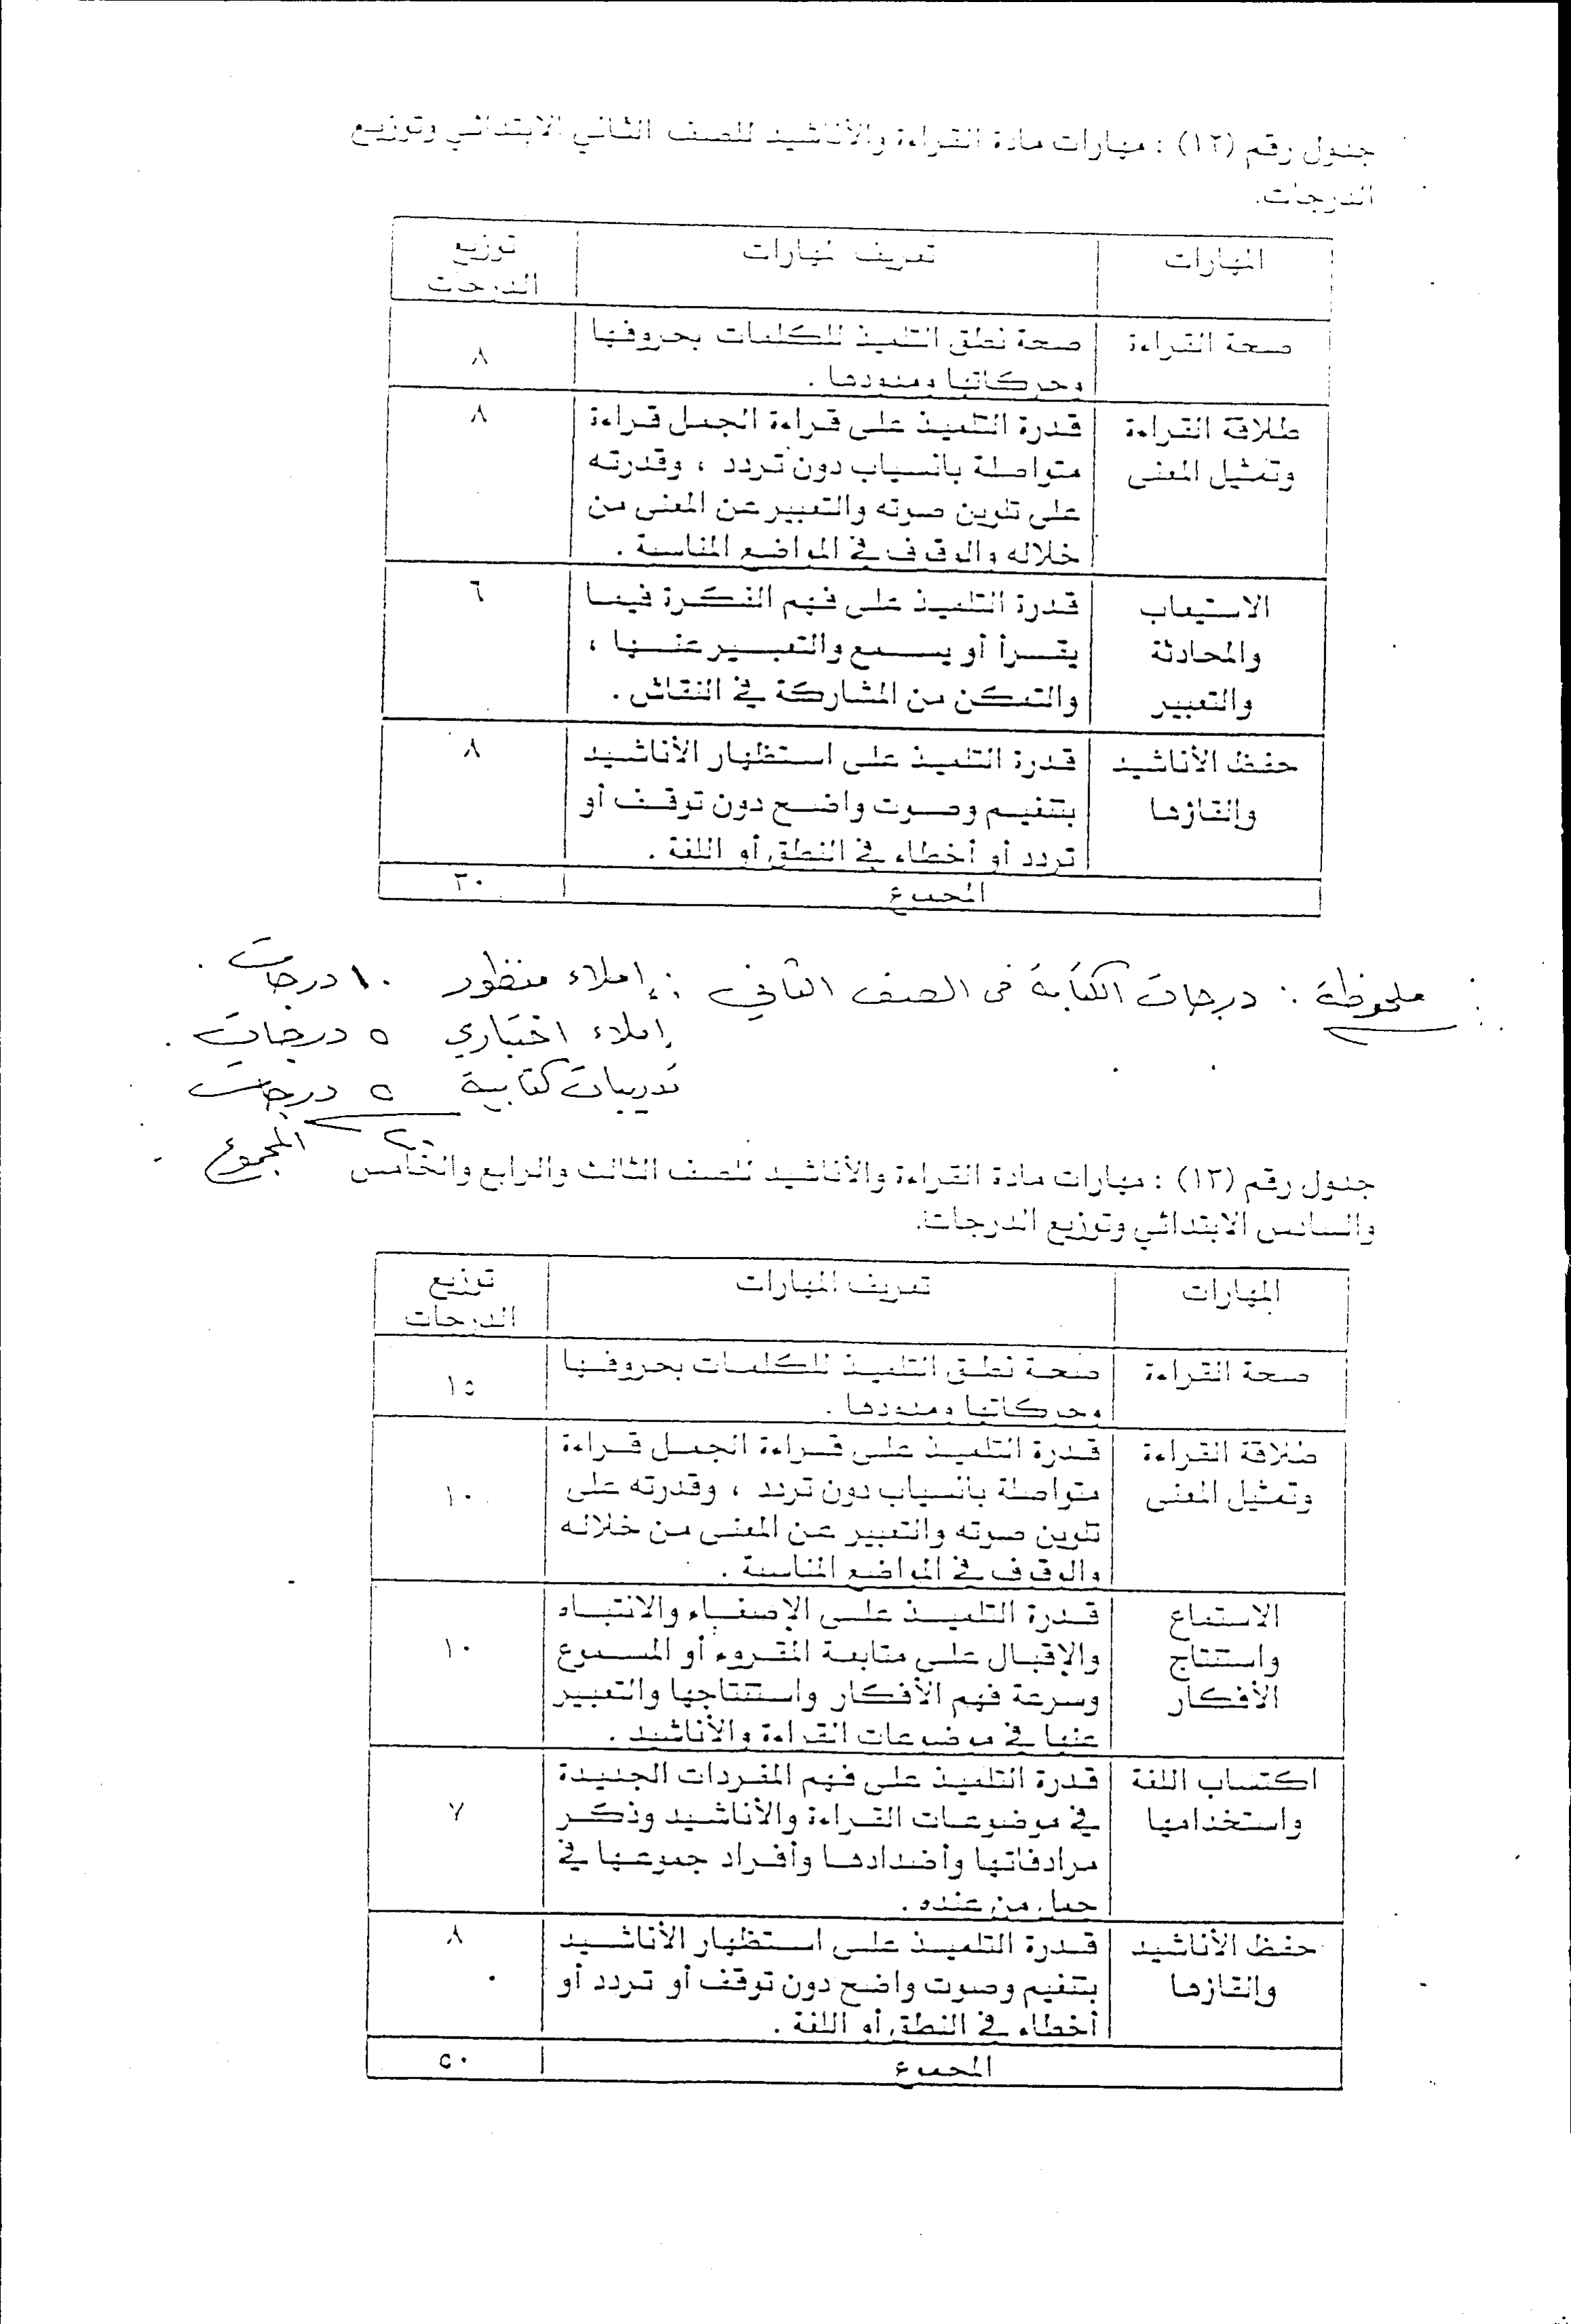 جدول رقم (١٢) : مهارات مادة القراءة والأناشيد للصف الثاني الابتدائي وتوزيع
الدرجات.
المهارات	تعريف المهارات	توزيع
الدرجات
صحة القراءة	صحة نطق التلميذ للكلمات بحروفها	٨
وحركاتها ومدودها .
طلاقة القراءة	قدرة التلميذ على قراءة الجمل قراءة	٨
وتمثيل المعنى	متواصلة بانسياب دون تردد ، وقدرته
على تلوين صوته والتعبير عن المعنى من
خلاله والوقوف في المواضع المناسبة .
الاستيعاب	قدرة التلميذ على فهم الفكرة فيما	٦
والمحادثة	يقرأ أو يسمع والتعبير عنها ،
والتعبير	والتمكن من المشاركة في النقاش .
حفظ الأناشيد	قدرة التلميذ على استظهار الأناشيد	٨
وإلقاؤها	بتنغيم وصوت واضح دون توقف أو
تردد أو أخطاء في النطق أو اللغة .
المجموع	٣٠
ملحوظة : درجات الكتابة في الصف الثاني : إملاء منظور ١٠ درجات .
إملاء اختباري ٥ درجات .
تدريبات كتابية ٥ درجات
٢٠ المجموع
جدول رقم (١٣) : مهارات مادة القراءة والأناشيد للصف الثالث والرابع والخامس
والسادس الابتدائي وتوزيع الدرجات.
المهارات	تعريف المهارات	توزيع
الدرجات
صحة القراءة	صحة نطق التلميذ للكلمات بحروفها	١٥
وحركاتها ومدودها .
طلاقة القراءة	قدرة التلميذ على قراءة الجمل قراءة
وتمثيل المعنى	متواصلة بانسياب دون تردد ، وقدرته على	١٠
تلوين صوته والتعبير عن المعنى من خلاله
والوقوف في المواضع المناسبة .
الاستماع	قدرة التلميذ على الإصغاء والانتباه
واستنتاج	والإقبال على متابعة المقروء أو المسموع	١٠
الأفكار	وسرعة فهم الأفكار واستنتاجها والتعبير
عنها في موضوعات القراءة والأناشيد .
اكتساب اللغة	قدرة التلميذ على فهم المفردات الجديدة
واستخدامها	في موضوعات القراءة والأناشيد وذكر	٧
مرادفاتها وأضدادها وأفراد جموعها في
جمل من عنده .
حفظ الأناشيد	قدرة التلميذ على استظهار الأناشيد	٨
وإلقاؤها	بتنغيم وصوت واضح دون توقف أو تردد أو
أخطاء في النطق أو اللغة .
المجموع	٥٠